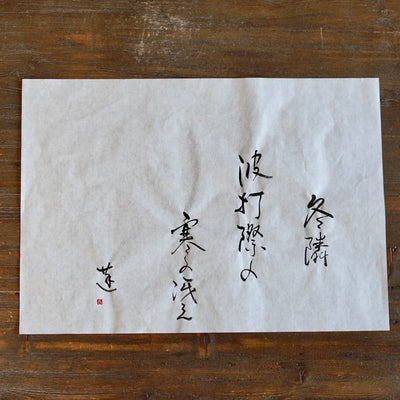 冬隣
波打際の
寒の
蓮